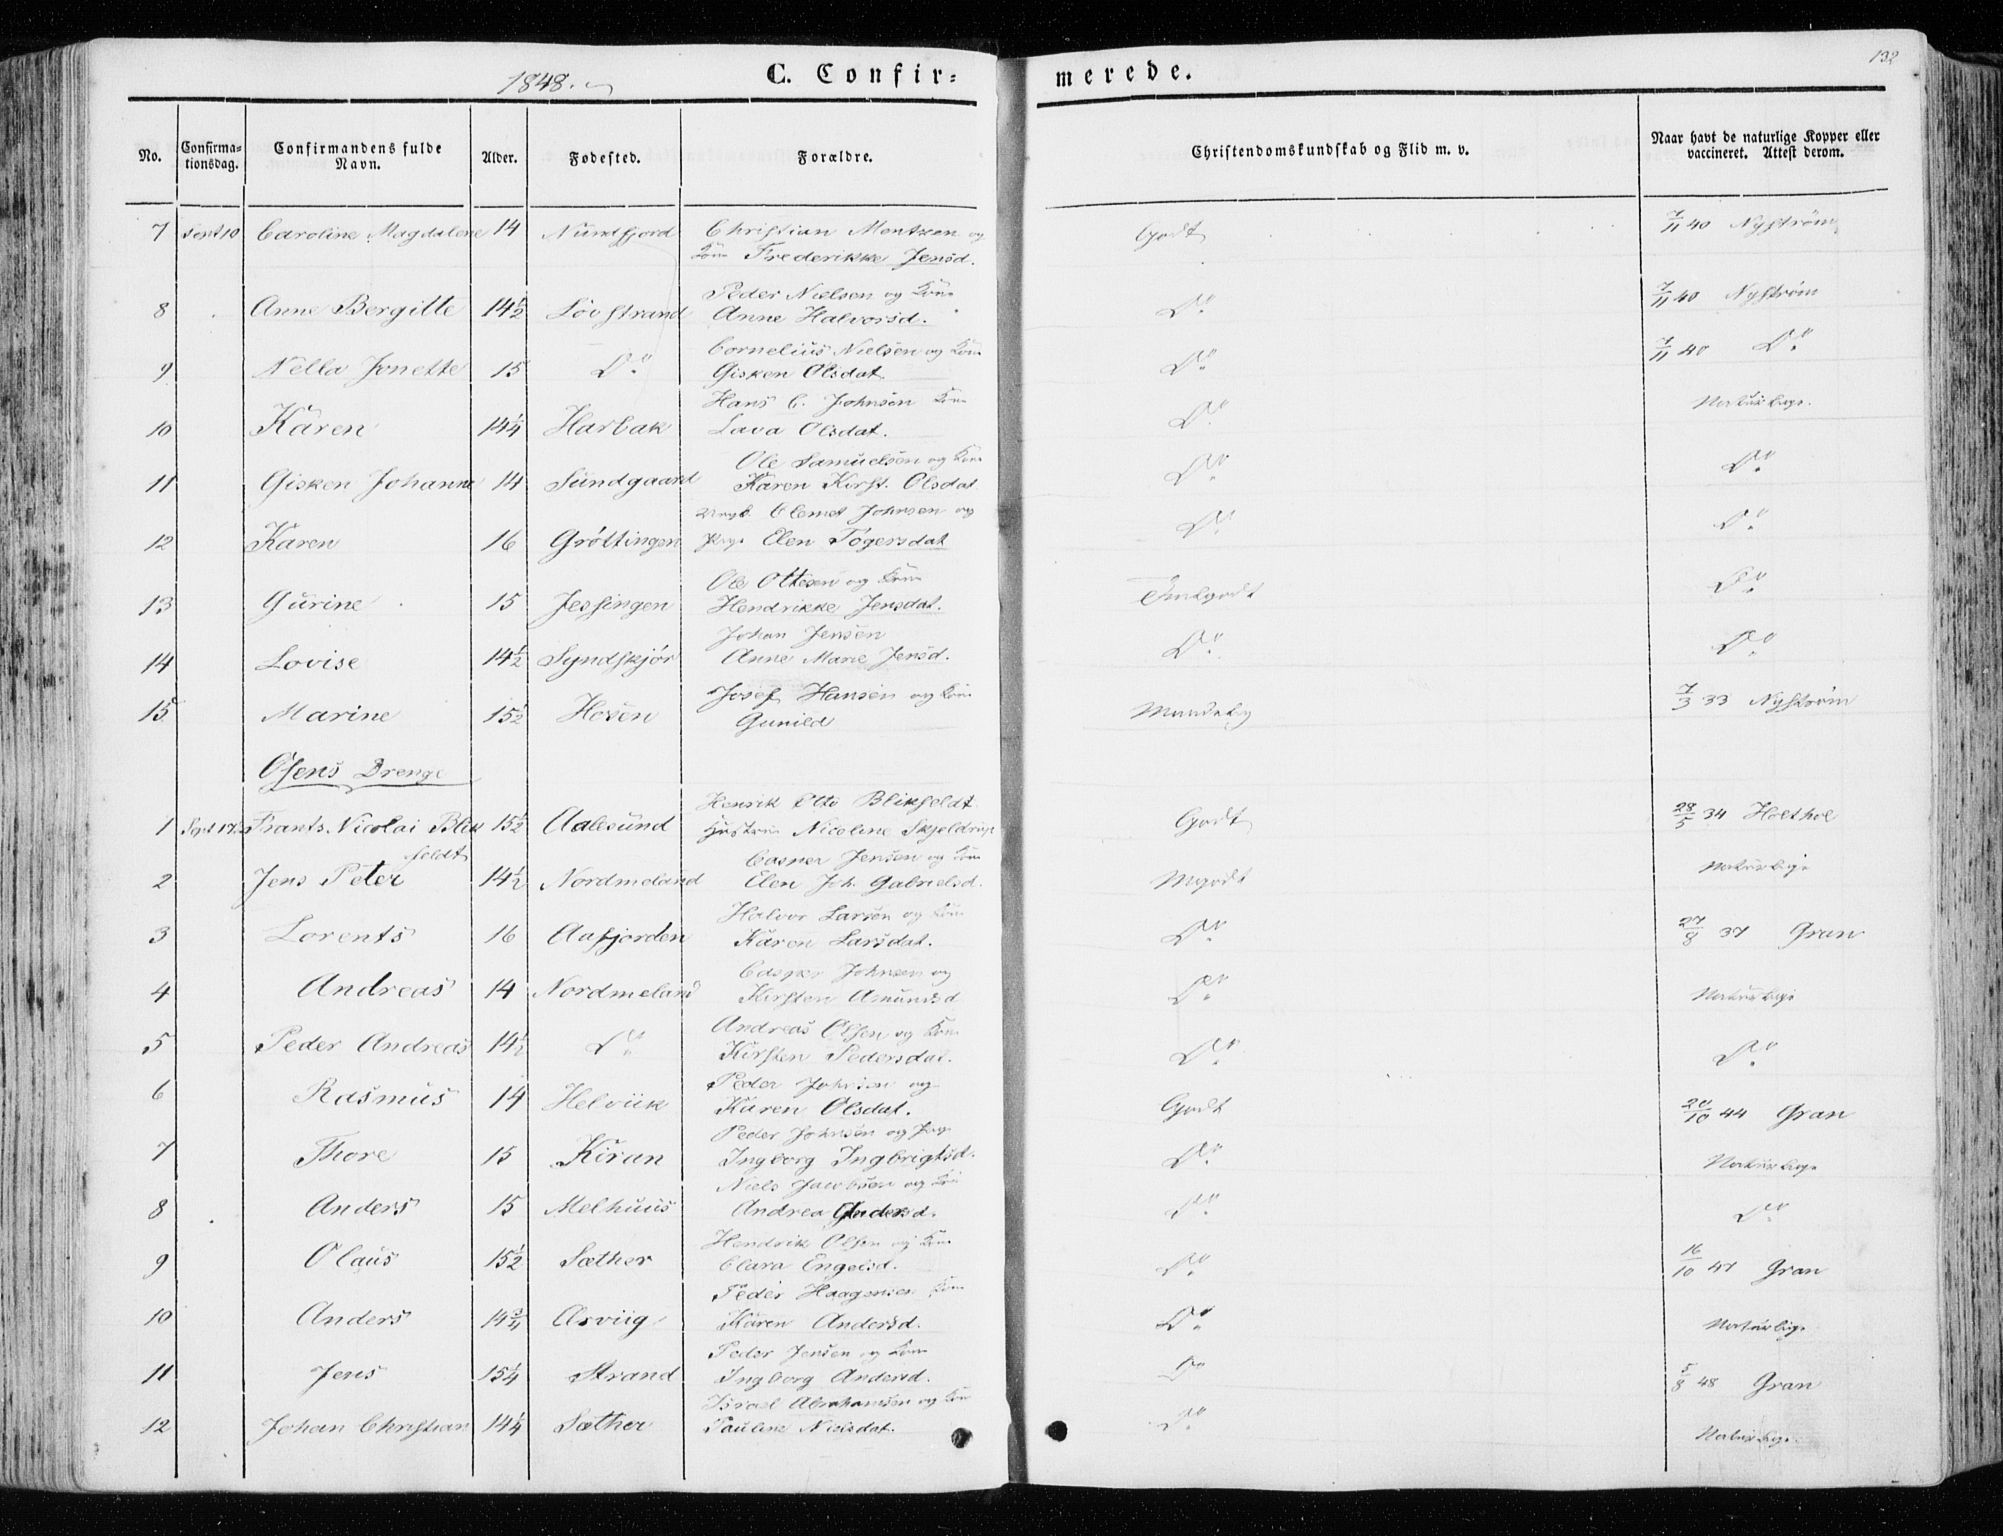 1848.
C. Confir=
merede.
132
No.
Confirma-
tionsdag.
Confirmandens fulde
Navn.
Alder.
Fødested.
Forældre.
Christendomskundskab og Flid m. v.
Naar havt de naturlige Kopper eller
vaccineret. Attest derom.
7 Sept 10 Caroline Magdalene 14 Christian Mentzen og Godt 7/11 40 Nystrøm
Kone Frederikke Jensd.
Peder Nielsen og Kone
8 Anne Bergitte 14½ Løvstrand Anne Halvorsd. Do 7/11 40 Nystrøm
Cornelius Nielsen og Kone
9 Nella Jonette 15 Do Gisken Olsdat Do 7/11 40 Do
Hans C. Johnsen Kone
10 Karen 14¼ Harbak Lava Olsdat. Do Naturlige.
Ole Samuelsen og Kone
11 Gisken Johanne 14 Sundgaard Karen Kirst. Olsdat Do Do
Clemet Johnsen og
12 Karen 16 Grøttingen Pige Elen Togersdat Do Do
Ole Ottesen og Kone
13 Gurine 15 Jessingen Hendrikke Jensdat. Do
Johan Jensen
14 Lovise 14½ Syndskjør Anne Marie Jensd. Do Do
Josef Hansen og Kone
15 Marine 15½ Hosen Gunild 7/3 33 Nystrøm
Osens Drenge
Henrik Otto Blikfeldt
1 Sept 17 Frants Nicolai Blik 15½ Aalesund Hustrue Nicoline Skjeldrup Godt 28/5 34 Holthoe
feldt
Casper Jensen og Kone
2 Jens Peter 14½ Nordmeland Elen Joh. Gabrielsd. Mgodt Naturlige
Halvor Larsen og Kone
3 Lorents 16 Aafjorden Karen Larsdat. Do 27/8 37 Gran
Casper Johnsen og
4 Andreas 14 Nordmeland Kirsten Amundsd Do Naturlige
Andreas Olsen og Kone
5 Peder Andreas 14½ Do Kirsten Pedersdat. Do Do
Peder Johnsen og
6 Rasmus 14 Helviik Karen Olsdat. Godt 20/10 44 Gran
Peder Johnsen og Pige
7 Thore 15 Kiran Ingborg Ingbrigtsd. Do Naturlige
Niels Jacobsen og Kone
8 Anders 15 Melhuus Andrea Andersd. Do Do
Hendrik Olsen og Kone
9 Olaus 15½ Sæther Clara Engelsd. Do 16/10 47 Gran
Peder Haagensen Kone
10 Anders 14¾ Asviig Karen Andersd. Do Naturlige
Peder Jensen og Kone
11 Jens 15¼ Strand Ingborg Andersd. Do 5/8 48 Gran
Israel Abrahamsen og Kone
12 Johan Christian 14¼ Sæther Pauline Nielsdat. Do Naturlige